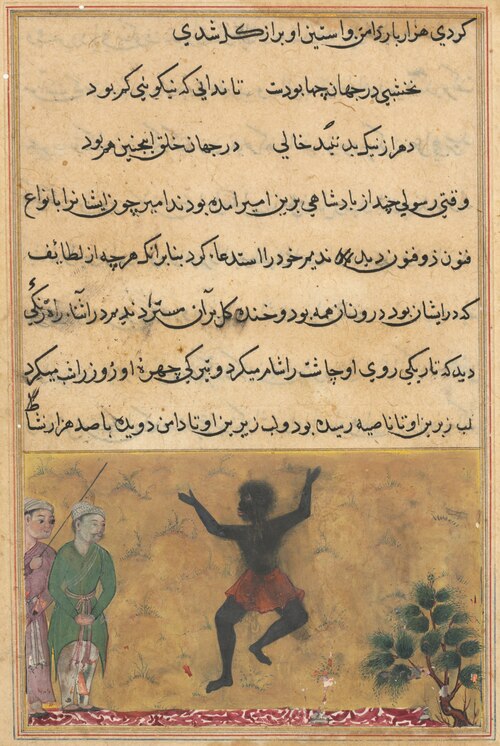 کردی هزار بار دامن و استین او پر از کل شدی
نخشبی در جهان چها بودست تا ندانی که نیکوئی کم بود
دهر از نیک بد نیکد خالی در جهان خلق اینچنین هم بود
وقتی رسولی چند از بادشاهی برین امیر امده بودند امیر چون ایشانرا بانواع
فنون ذو فنون دید ندیم خود را استدعا کرد بنابرانکه هرچه از لطائف
که در ایشان بود در ونان همه بود و خنده کل بران مستزاد ندیم در اثنا راه زنکی
دید که تاریکی روی او چاشت را شام میکرد و تیرکی چهره او روز را شب میکرد
لب زبرین او تا ناصیه رسیده بود و لب زیرین او تا دامن دویده با صد هزار نشاط